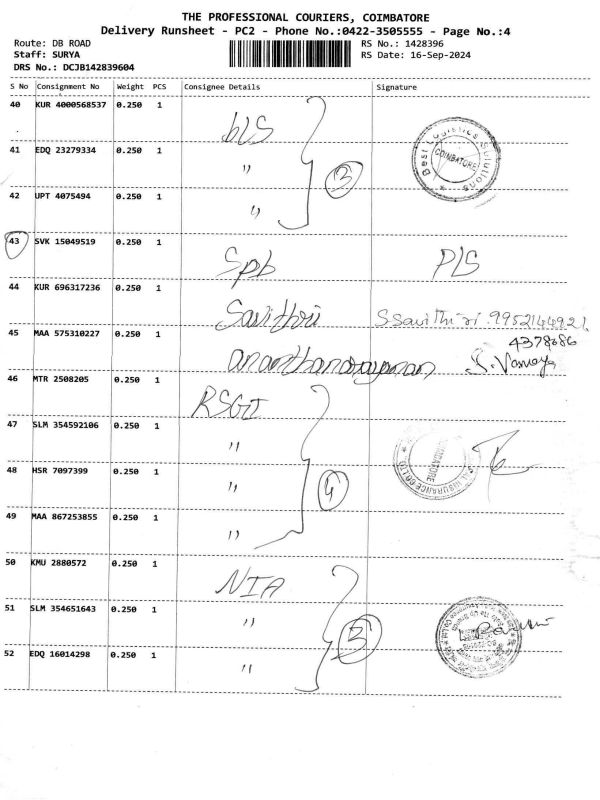 THE PROFESSIONAL COURIERS, COIMBATORE
Delivery Runsheet - PC2 - Phone No.:0422-3505555 - Page No.:4
Route: DB ROAD RS No.: 1428396
Staff: SURYA RS Date: 16-Sep-2024
DRS No.: DCJB142839604
S No Consignment No Weight PCS Consignee Details Signature
40 KUR 4000568537 0.250 1 bLS
Best Logistics Solutions COIMBATORE
41 EDQ 23279334 0.250 1 " 3
42 UPT 4075494 0.250 1 "
43 SVK 15049519 0.250 1 Spb PLS
44 KUR 696317236 0.250 1 Savithri S Savithiri 9952144921
45 MAA 575310227 0.250 1 Ananthanarayanan 4378686
46 MTR 2508205 0.250 1 RSGI
47 SLM 354592106 0.250 1 "
COIMBATORE INSURANCE CO LTD
48 HSR 7097399 0.250 1 " 4
49 MAA 867253855 0.250 1 "
50 KMU 2880572 0.250 1 NIA
51 SLM 354651643 0.250 1 " 3
52 EDQ 16014298 0.250 1 "